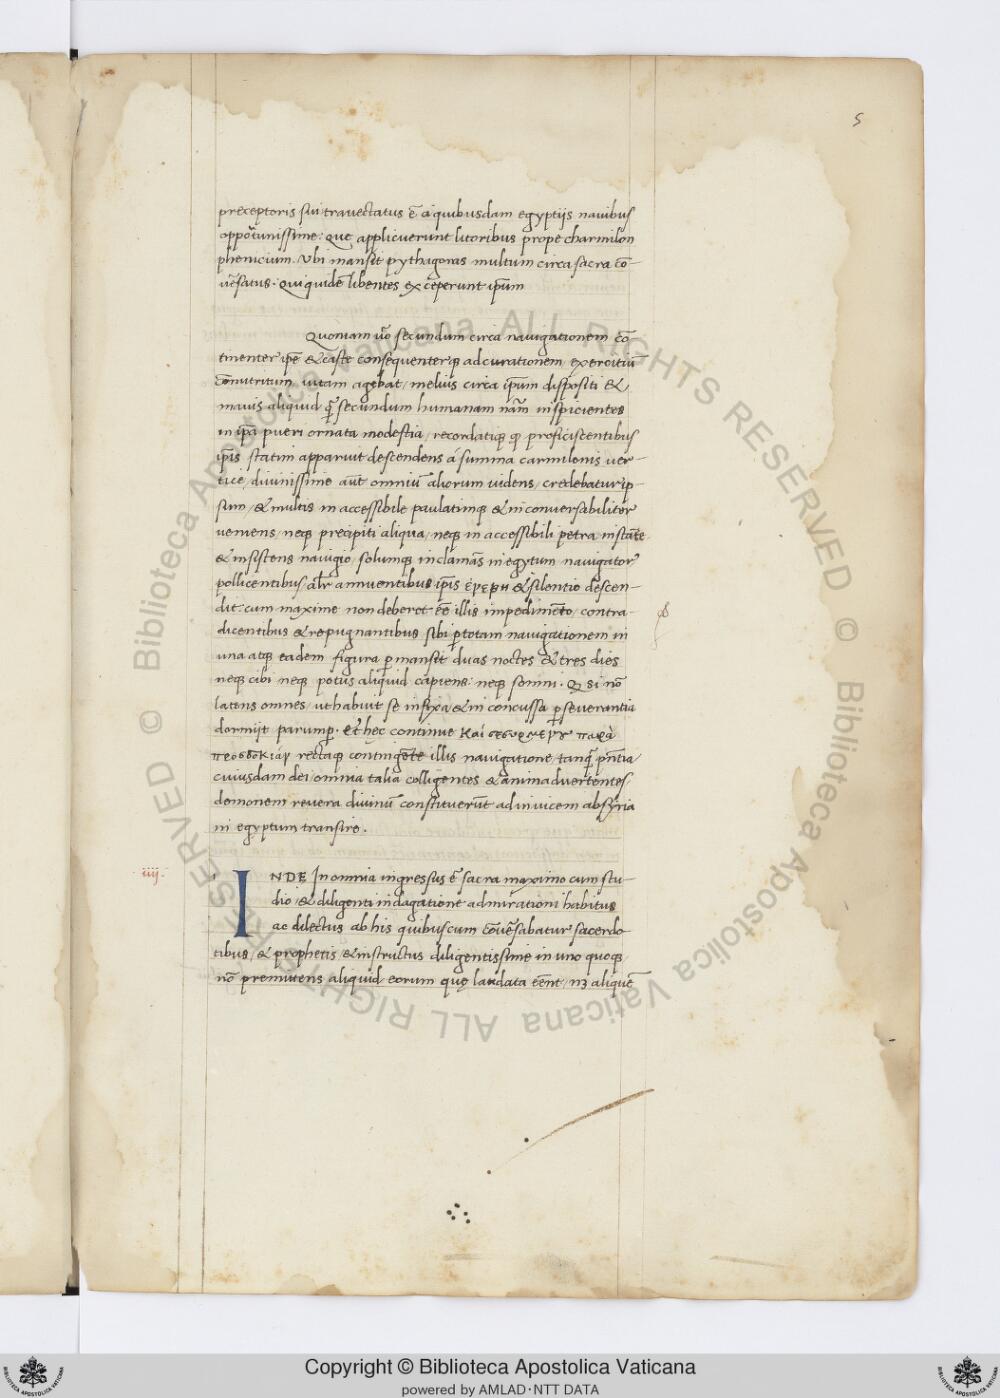 5
preceptoris sui travectatus ē a quibusdam egyptijs navibus
oppōtunissime: que applicuerunt litoribus prope charmilon
phenicium. Ubi mansit pythagoras multum circa sacra cō-
vēsatus. Qui quidē libentes exceperunt ip̄um
Quoniam v̄o secundum circa navigationem cō-
tinenter ip̄e & caste consequenterq; ad curationem exercitiū
connutritum vitam agebat, melius circa ip̄um dispositi &
maius aliquid q̄ secundum humanam nām inspicientes
in ip̄a pueri ornata modestia, recordatiq; q̄ proficiscentibus
ip̄is statim apparuit descendens a summa carmilonis ver-
tice, divinissime aūt omniū aliorum videns, credebatur ip-
sum, & multis in accessibile paulatimq; & inconversabiliter
veniens, neq; precipiti aliqua, neq; in accessibili petra instāte
& insistens navigio, solumq; inclamās in egytum navigator
pollicentibus, al̄r annuentibus ip̄is & silentio descen-
dit: cum maxime non deberet eē illis impedimēto, contra-
dicentibus & repugnantibus sibi p̄ totam navigationem in
una atq; eadem figura p̄mansit duas noctes & tres dies
neq; cibi neq; potus aliquid capiens: neq; somni. Q si nō
latens omnes, ut habuit se in fixa & in concussa p̄severantia
dormijt parump̄. et hec continue και παρὰ
rectaq; contingēte illis navigatione, tanq̄ p̄ntia
cuiusdam dei, omnia talia colligentes & animadvertentes,
demonem revera divinū constituerūt ad invicem ab syria
in egyptum transire.
iiij.
INDE In omnia ingressus ē sacra maximo cum stu-
dio, & diligenti indagatione admirationi habitus
ac dilectus ab his quibuscum cōvēsabatur sacerdo-
tibus, & prophetis, & instructus diligentissime in uno quoq;
nō premittens aliquid eorum quę laudata eēnt, nȝ aliquē
© Biblioteca Apostolica Vaticana ALL RIGHTS RESERVED © Biblioteca Apostolica Vaticana ALL RIGHTS RESERVED
Copyright © Biblioteca Apostolica Vaticana
powered by AMLAD·NTT DATA
BIBLIOTECA APOSTOLICA VATICANA
BIBLIOTECA APOSTOLICA VATICANA